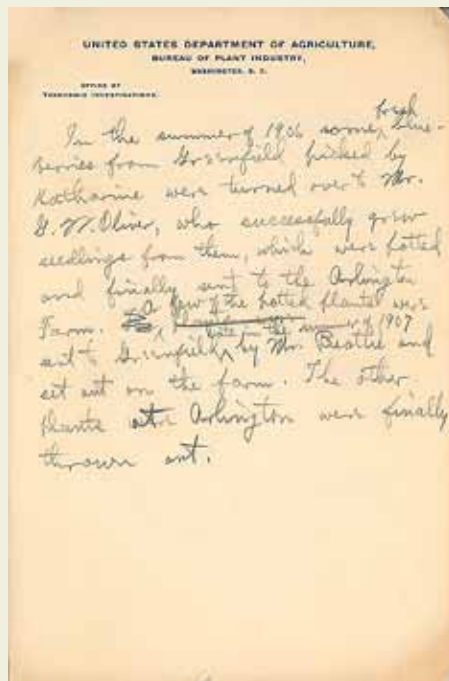 UNITED STATES DEPARTMENT OF AGRICULTURE,
BUREAU OF PLANT INDUSTRY,
WASHINGTON, D. C.
OFFICE OF
TAXONOMIC INVESTIGATIONS.
In the summer of 1906 some fresh blue-
berries from Greenfield picked by
Katharine were turned over to Mr.
G. W. Oliver, who successfully grew
seedlings from them, which were potted
and finally sent to the Arlington
Farm. A few of the potted plants were
sent to Greenfield late in the summer of 1907 by Mr. Beattie and
set out on the farm. The other
plants at Arlington were finally
thrown out.